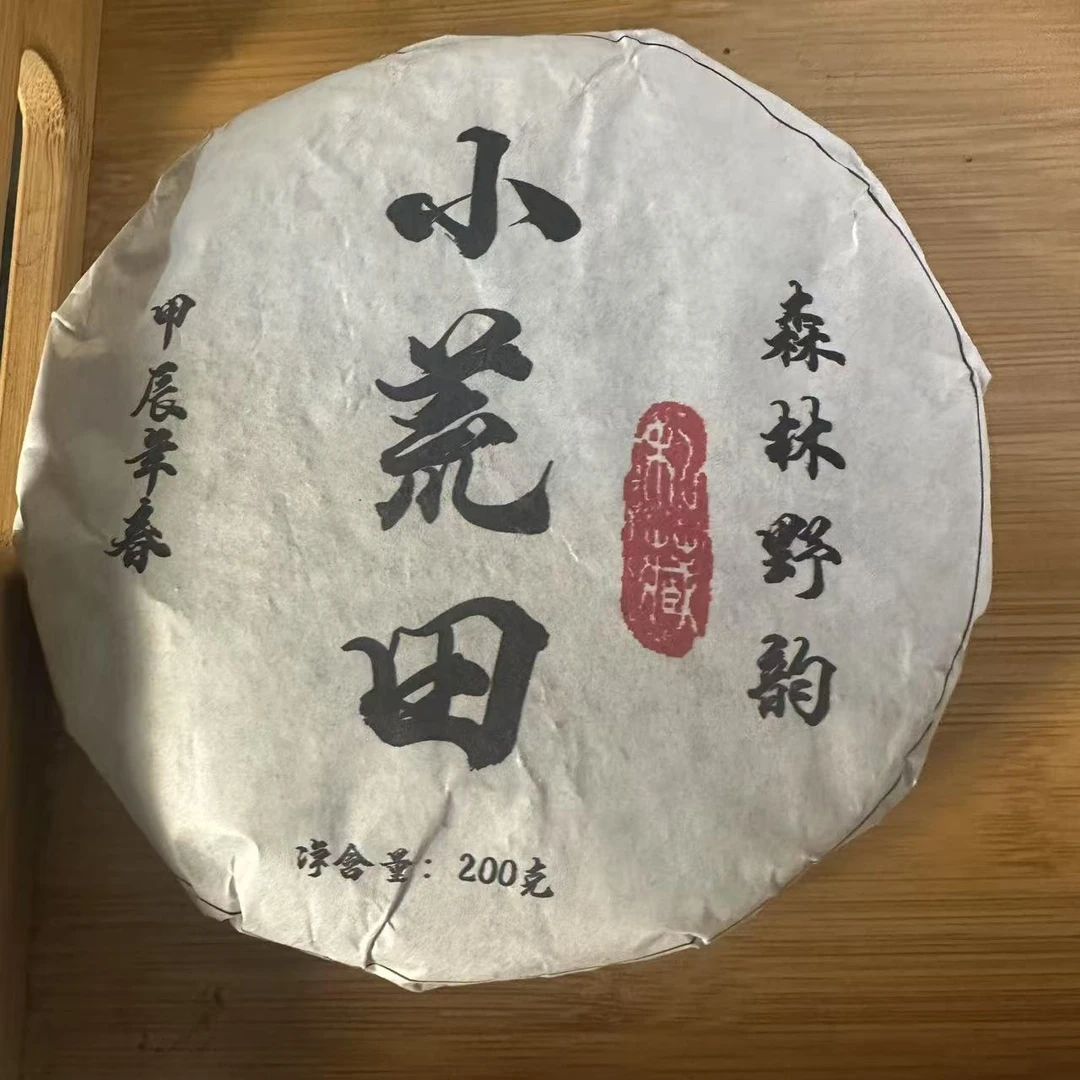 森林野韵
私藏
小荒田
甲辰年春
净含量：200克